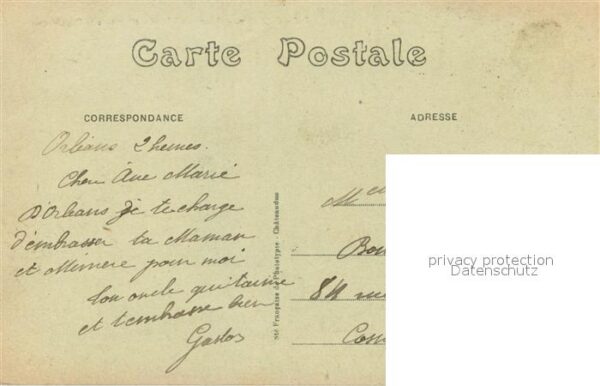 Carte Postale
CORRESPONDANCE
ADRESSE
Orléans 2 heures.
Chere Ane Marie
D'Orléans je te charge
d'embrasser ta Maman
et Mimere pour moi
ton oncle qui t'aime
et t'embrasse bien
Gaston
Sté Française de Phototypie - Châteaudun
84
privacy protection
Datenschutz